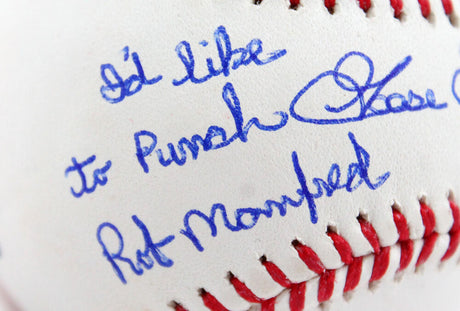 I'd like
to Punch
Rob Manfred
Chase